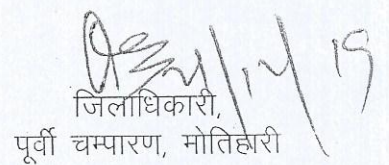 जिलाधिकारी,
पूर्वी चम्पारण, मोतिहारी